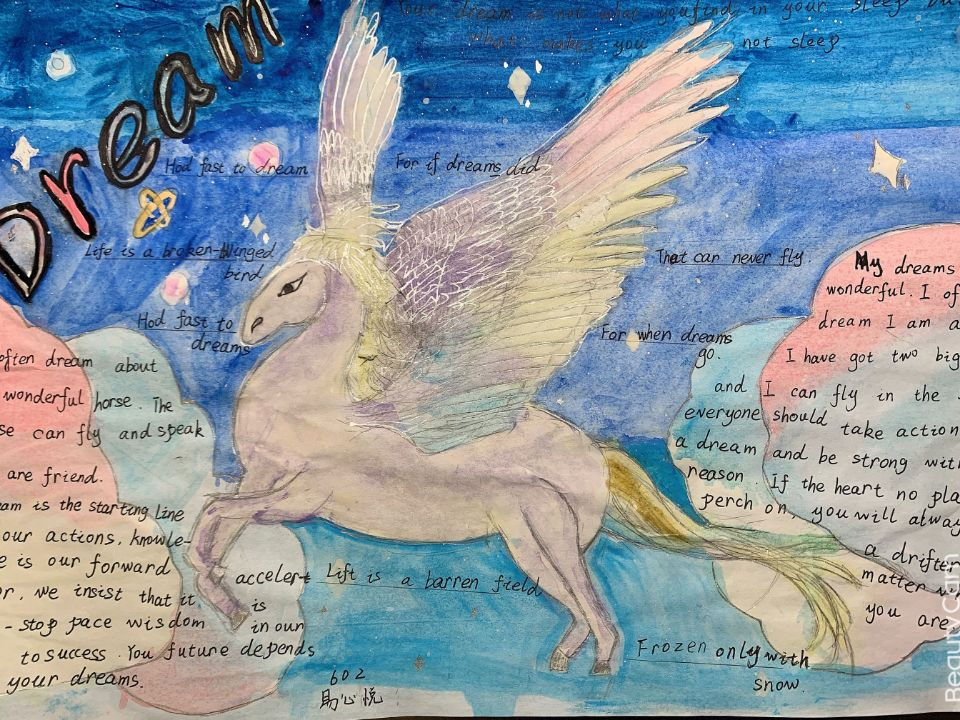 Dream
Your dream is not what you find in your sleep but
what makes you not sleep.
Hod fast to dream
For if dreams did
Life is a broken-Winged
bird
That can never fly.
Hod fast to
dreams
For when dreams
go.
Lift is a barren field
Frozen only with
snow.
often dream about
wonderful horse. The
se can fly and speak
are friend.
eam is the starting line
our actions, knowle-
e is our forward
or, we insist that it is
- stop pace wisdom in our
to success. You future depends
your dreams.
My dreams
wonderful. I of
dream I am a
I have got two big
and I can fly in the
everyone should take action
a dream and be strong with
reason. If the heart no pla
perch on, you will alway
a drifter
matter wh
you are.
602
BeautyCam